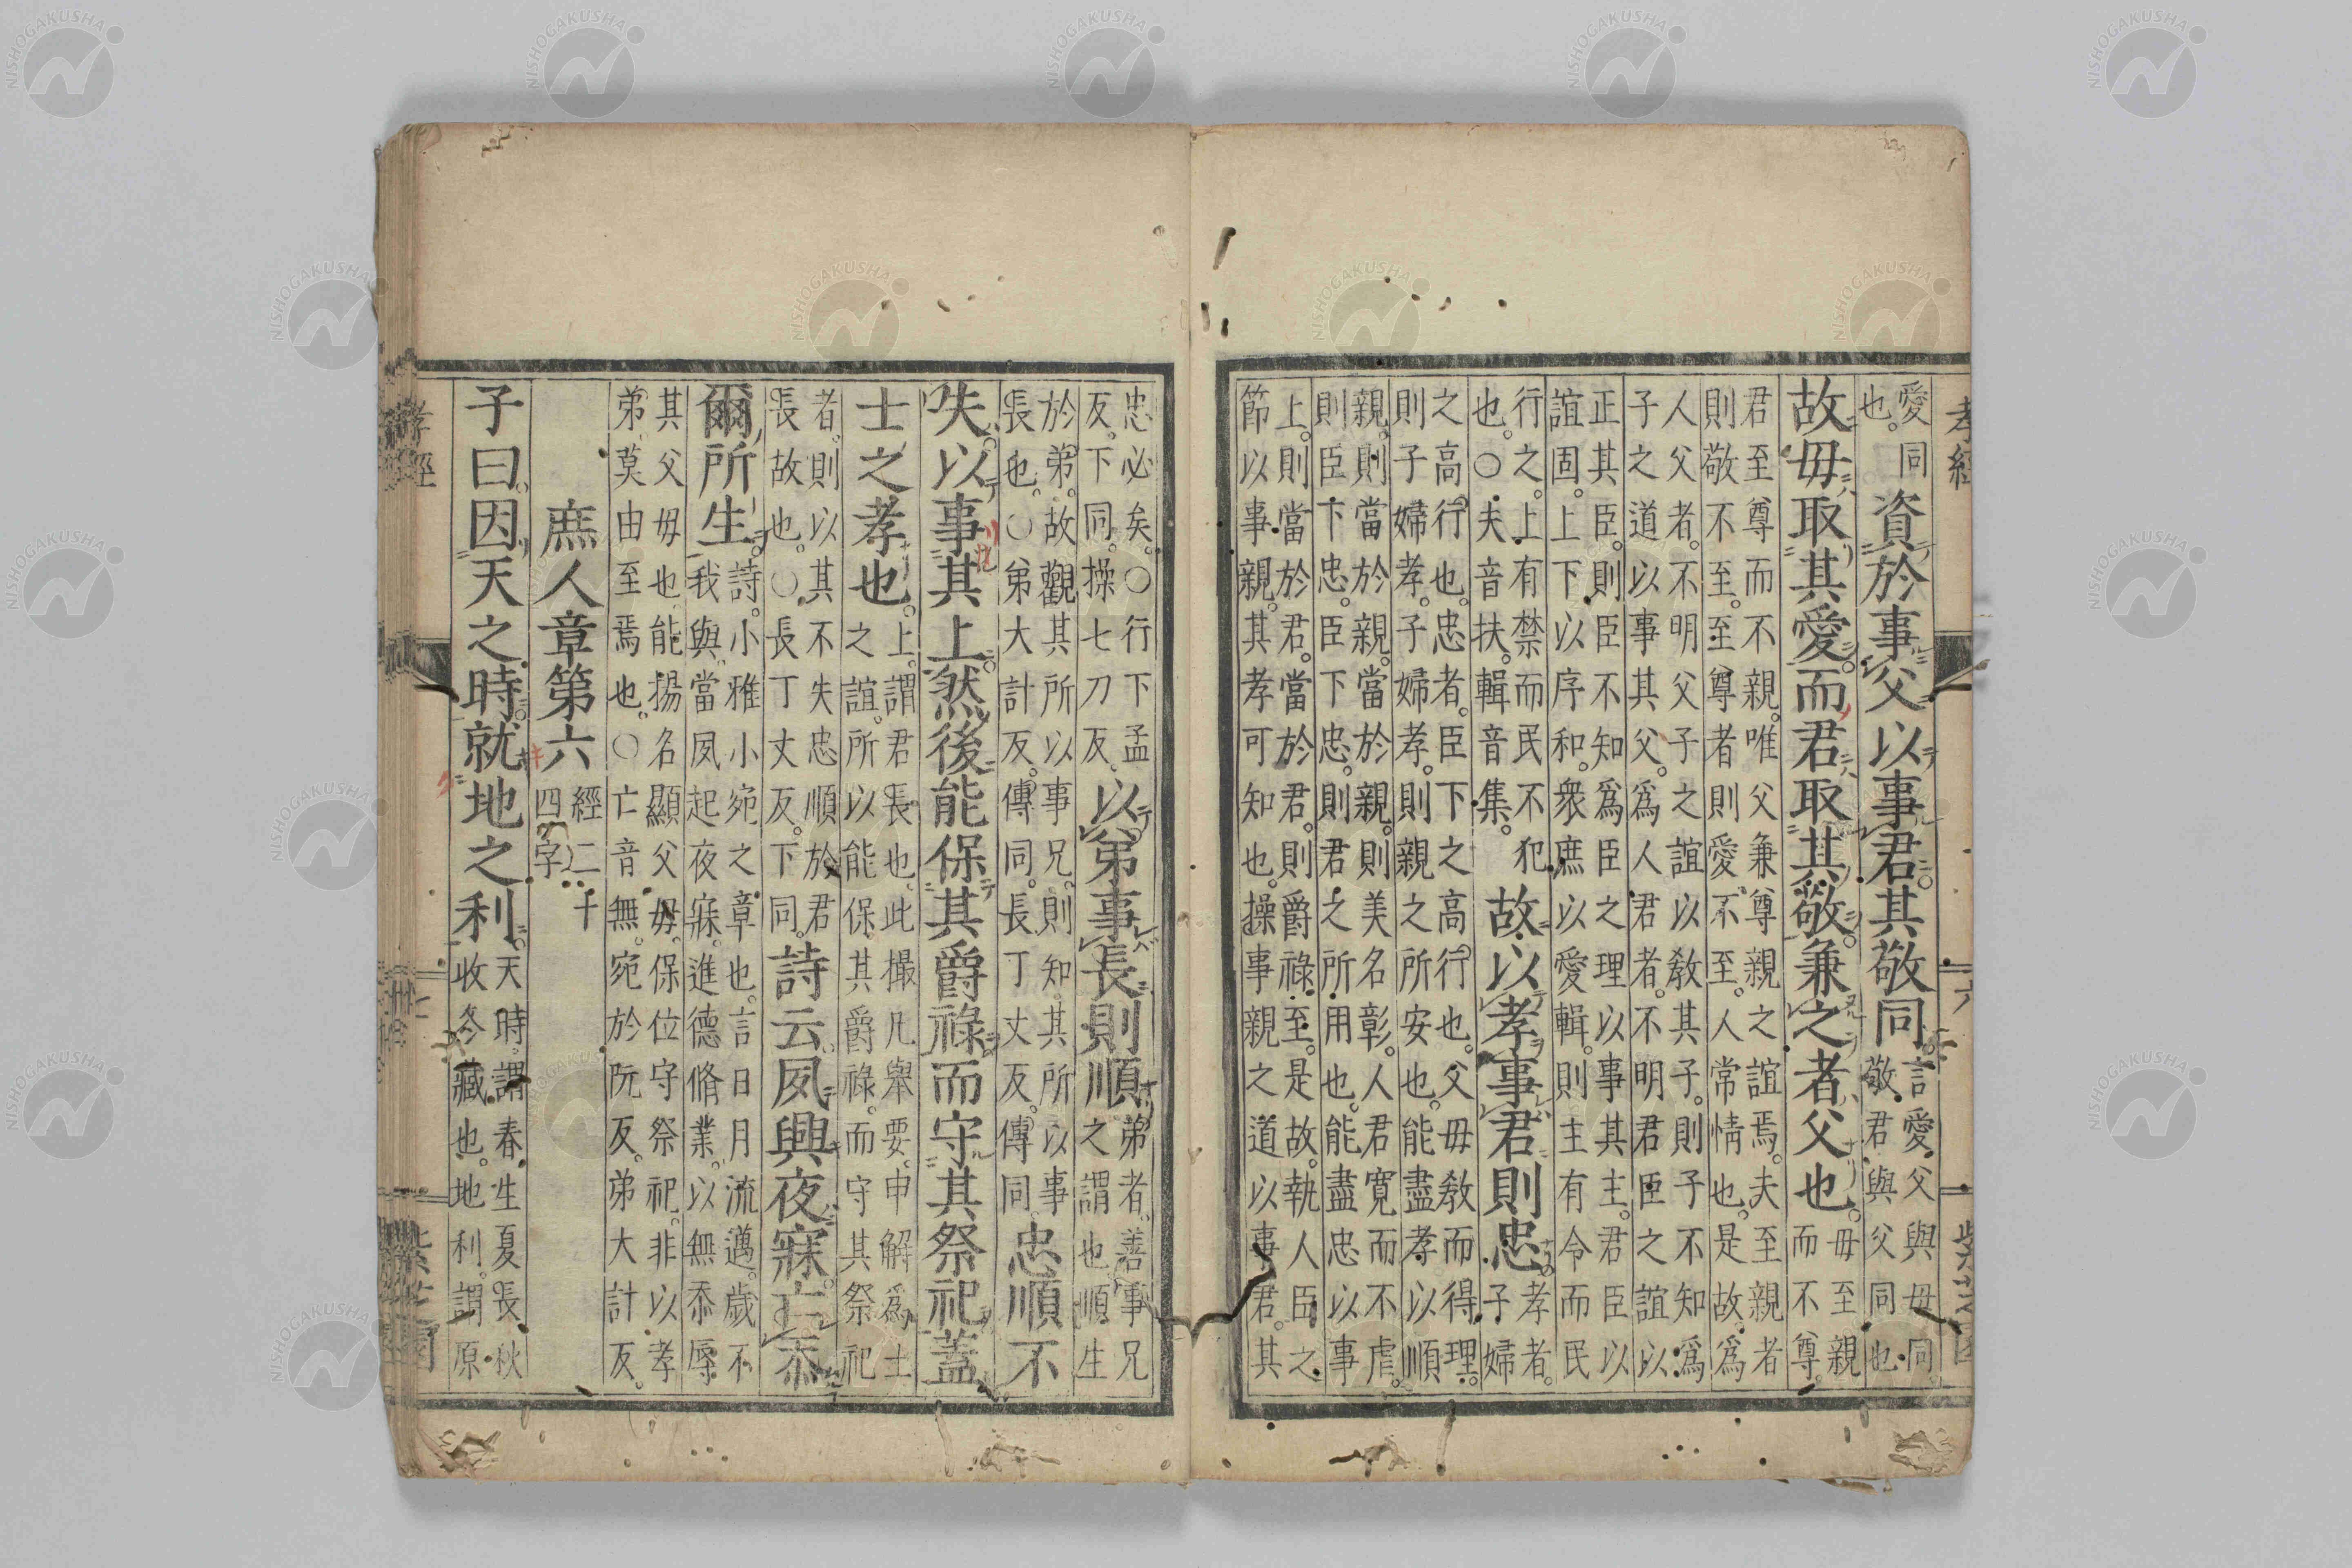 孝經
六
愛同
也。
資於事父以事君。其敬同
言愛父與母同。
敬君與父同也
故毋取其愛。而君取其敬。兼之者父也。
毋至親
而不尊
君至尊而不親。唯父兼尊親之誼焉。夫至親者
則敬不至。至尊者則愛不至。人常情也。是故爲
人父者。不明父子之誼以敎其子。則子不知爲
子之道以事其父。爲人君者。不明君臣之誼以
正其臣。則臣不知爲臣之理以事其主。君臣以
誼固。上下以序和。衆庶以愛輯。則主有令而民
行之。上有禁而民不犯
也。○夫音扶。輯音集。
故以孝事君則忠。
孝者。
子婦
之高行也。忠者。臣下之高行也。父毋敎而得理。
則子婦孝。子婦孝。則親之所安也。能盡孝以順
親。則當於親。當於親。則美名彰。人君寬而不虐。
則臣下忠。臣下忠。則君之所用也。能盡忠以事
上。則當於君。當於君。則爵祿至。是故執人臣之
節以事親。其孝可知也。操事親之道以事君。其
忠必矣。○行下孟
反。下同。操七刀反。
以弟事長則順
弟者。善事兄
之謂也順生
於弟。故觀其所以事兄。則知其所以事
長也。○弟大計反。傳同。長丁丈反。傳同。
忠順不
失。以事其上。然後能保其爵祿而守其祭祀蓋
士之孝也。
上。謂君長也。此撮凡舉要。申解爲士
之誼。所以能保其爵祿。而守其祭祀
者。則以其不失忠順於君
長故也。○長丁丈反。下同。
詩云夙興夜寐。亡忝
爾所生。
詩。小雅小宛之章也。言日月流邁。歲不
我與。當夙起夜寐。進德脩業。以無忝辱
其父毋也。能揚名顯父毋。保位守祭祀。非以孝
弟。莫由至焉也。○亡音無。宛於阮反。弟大計反。
庶人章第六
經二十
四字
子曰。因天之時。就地之利。
天時。謂春生夏長秋
收冬藏也。地利。謂原